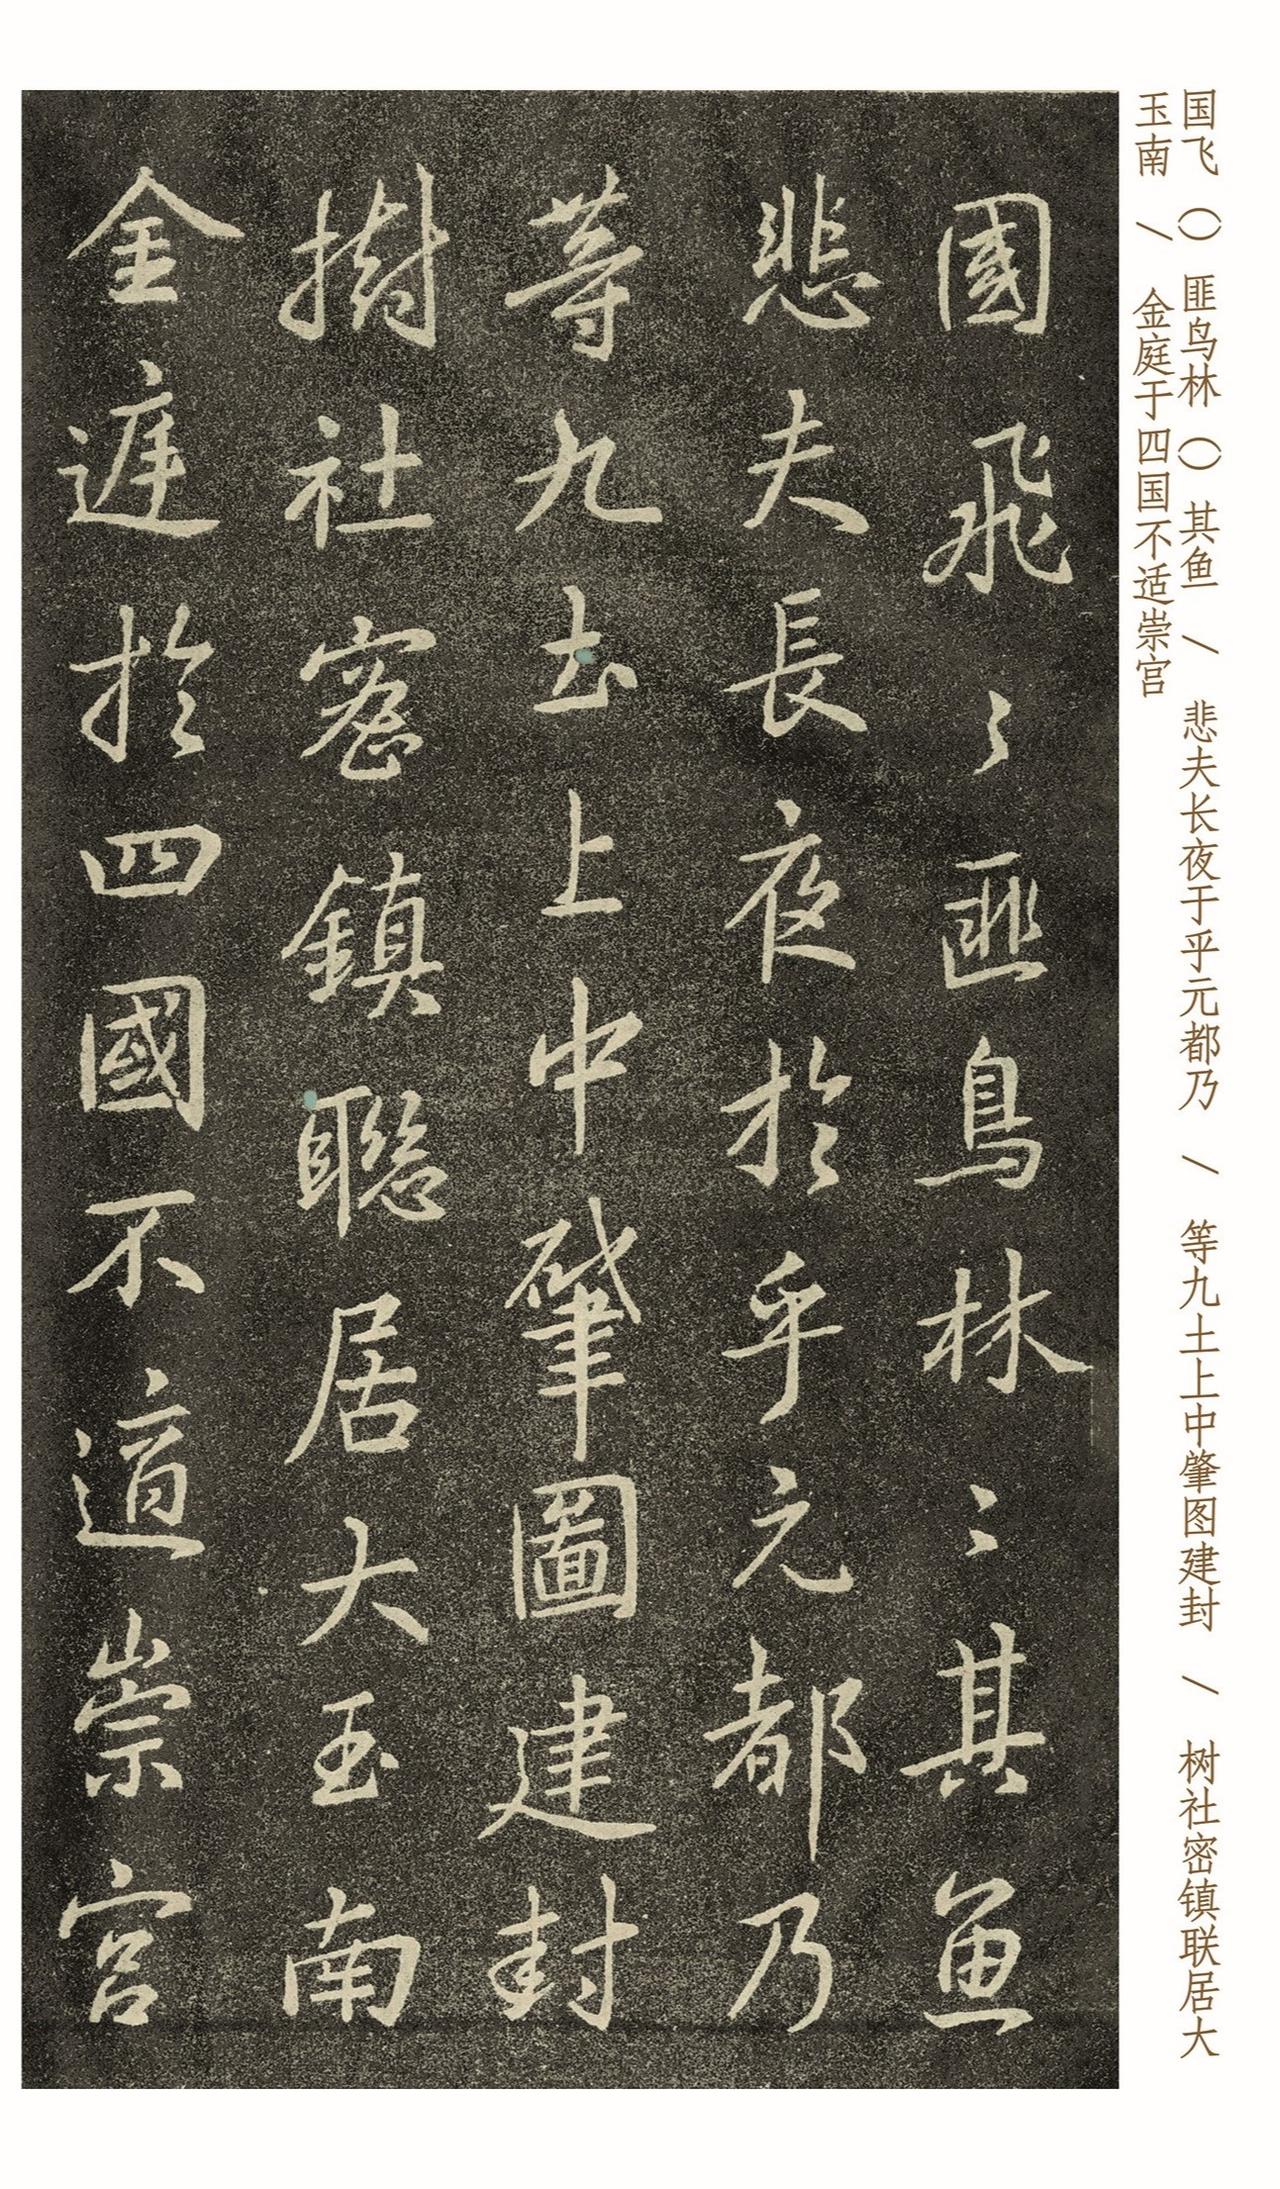 国飞()匪鸟林()其鱼 / 悲夫长夜于乎元都乃 / 等九土上中肇图建封 / 树社密镇联居大
玉南 / 金庭于四国不适崇宫
國飛〻匪鳥林〻其魚
悲夫長夜於乎元都乃
等九土上中肇圖建封
樹社密鎮聯居大玉南
金庭於四國不適崇宮